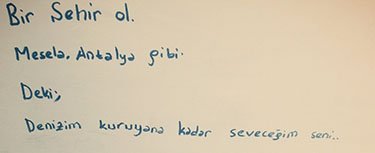 Bir Şehir ol.
Mesela. Antalya gibi.
Deki;
Denizim kuruyana kadar seveceğim seni..